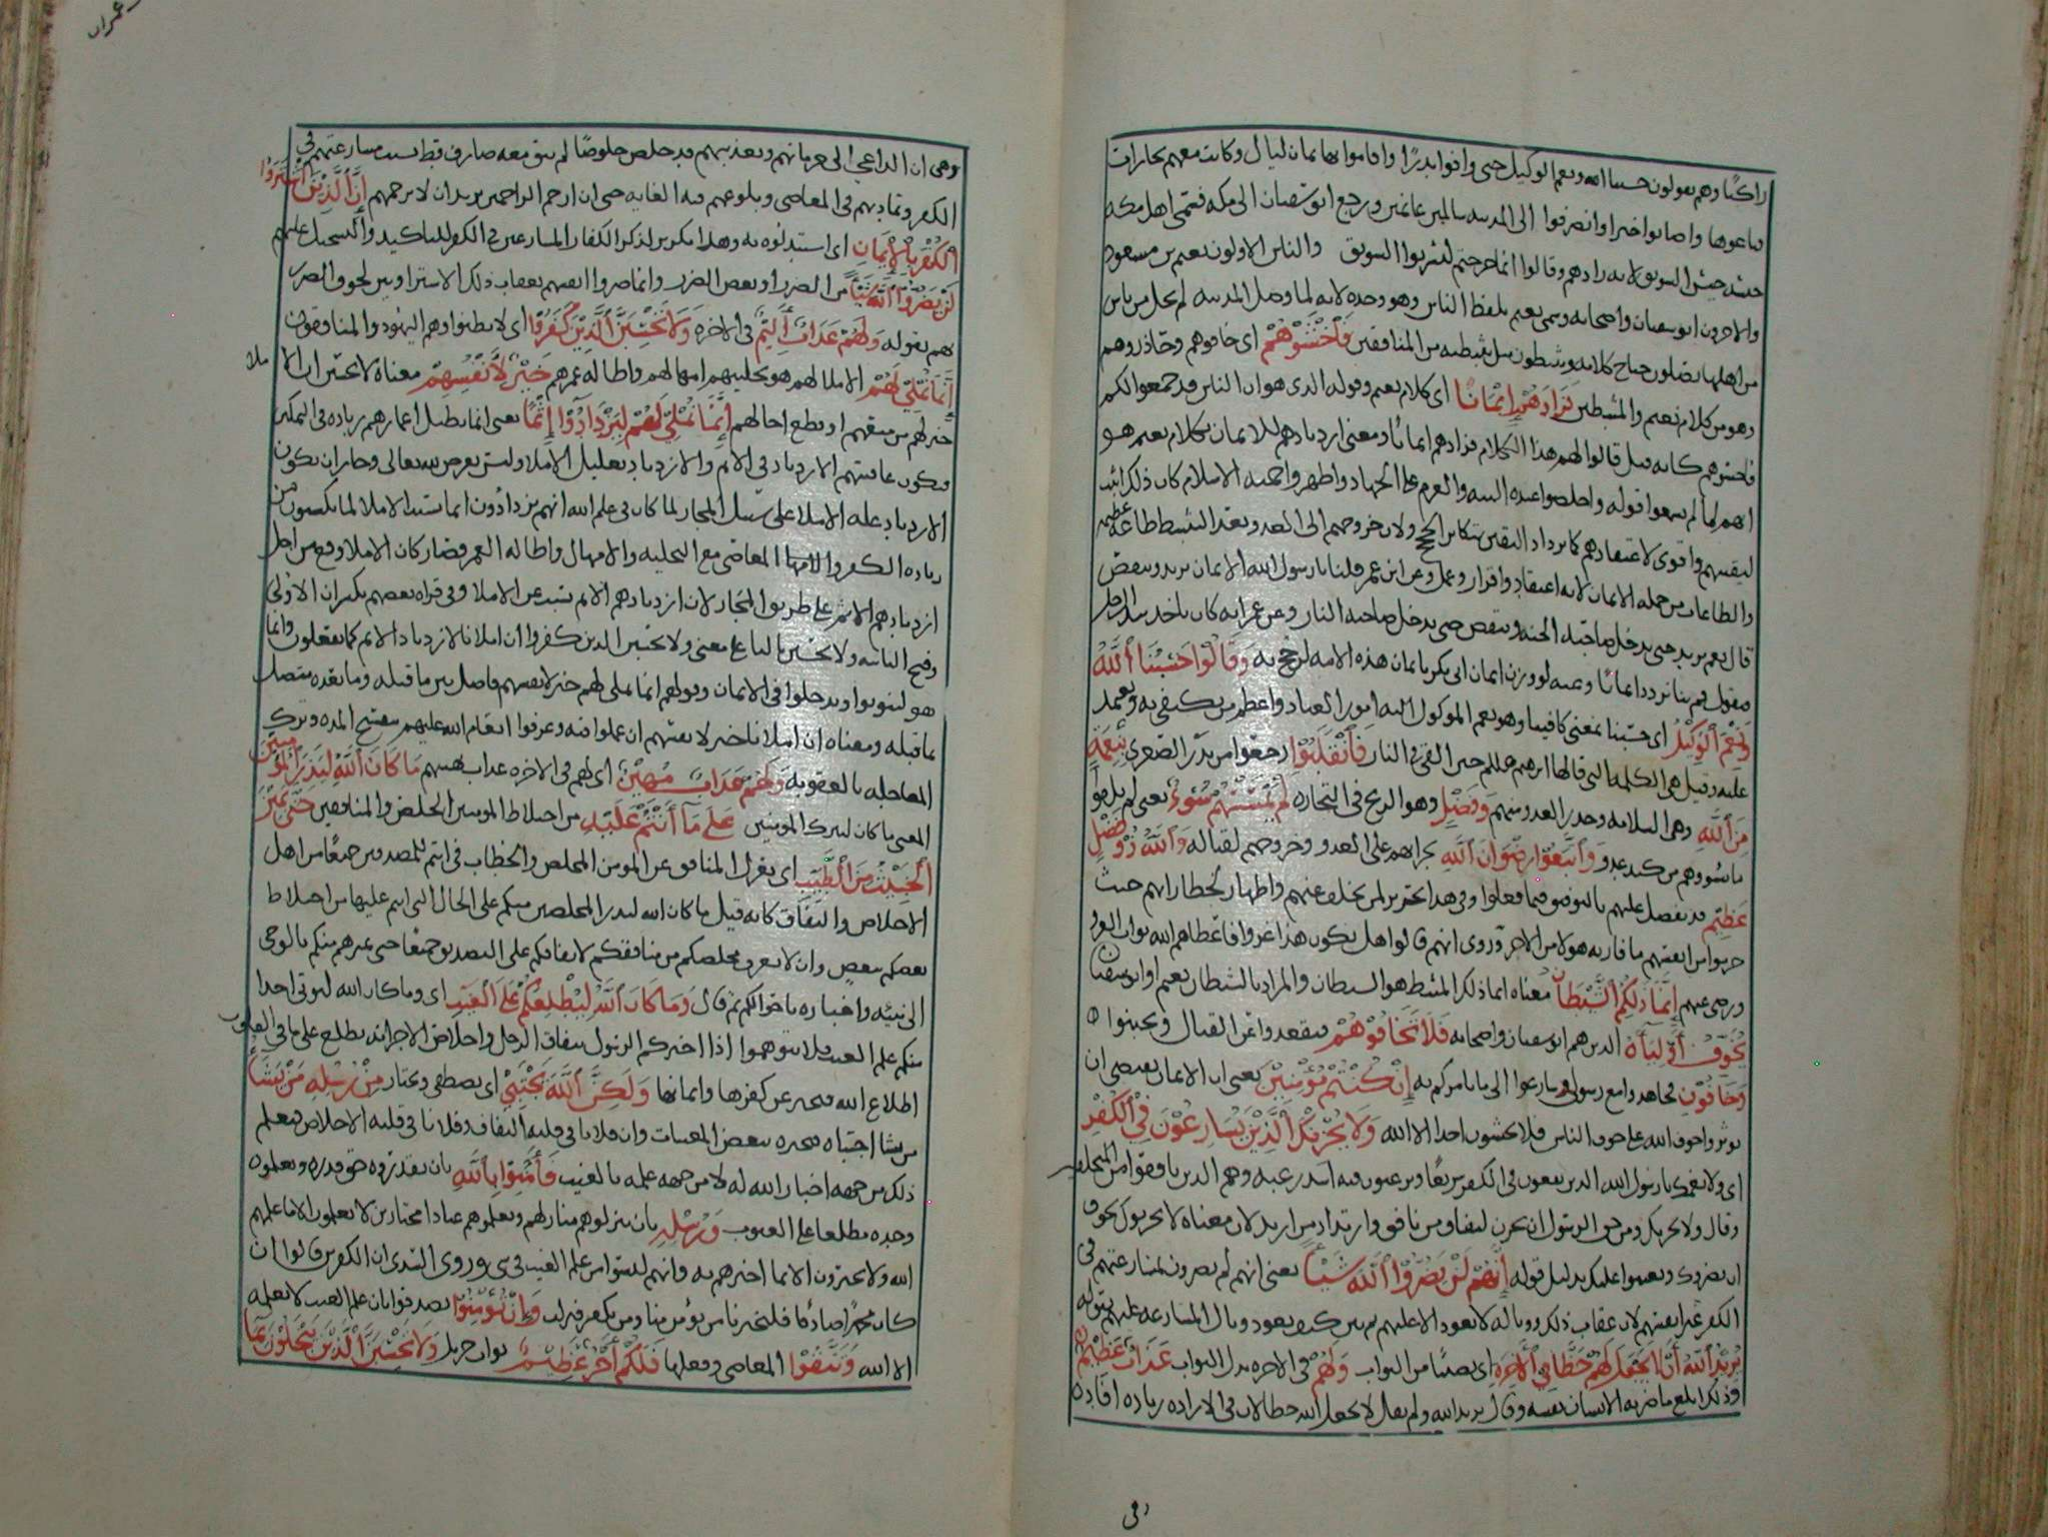 راكبًا وهم يقولون حسبنا الله ونعم الوكيل حتى وافوا بدرًا واقاموا بها ثمان ليال وكانت معهم تجارات
فباعوها واصابوا خيرا وانصرفوا الى المدينه سالمين غانمين ورجع ابو سفيان الى مكه فسمى اهل مكه
جيشه جيش السويق لانه زادهم وقالوا انما خرجتم لتشربوا السويق والناس الاولون نعيم بن مسعود
والاخرون ابو سفيان واصحابه وسمى نعيم بلفظ الناس وهو وحده لانه لما وصل المدينه لم يخل من ناس
من اهلها يصلون جناح كلامه ويثبطون مثل تثبيطه من المنافقين فَاخْشَوْهُمْ اى خافوهم وحاذروهم
وهو من كلام نعيم والمثبطين فَزَادَهُمْ إِيْمَانًا اى كلام نعيم وقوله الذى هو ان الناس قد جمعوا لكم
فاخشوهم كانه قيل قالوا لهم هذا الكلام فزادهم ايمانًا ومعنى ازديادهم للايمان بكلام نعيم هو
انهم لما لم يسمعوا قوله واخلصوا عنده النيه والعزم على الجهاد واظهروا حميه الاسلام كان ذلك اثبت
ليقينهم واقوى لاعتقادهم كما يزداد اليقين بتكاثر الحجج ولان خروجهم الى العدو بعد التثبيط طاعه عظيمه
والطاعات من جمله الايمان لانه اعتقاد واقرار وعمل وعن ابن عمر قلنا يا رسول الله الايمان يزيد وينقص
قال نعم يزيد حتى يدخل صاحبه الجنه وينقص حتى يدخل صاحبه النار وعن عمر انه كان ياخذ بيد الرجل
فيقول قم بنا نزدد ايمانًا وعنه لو وزن ايمان ابى بكر بايمان هذه الامه لرجح به وَقَالُوْا حَسْبُنَا اللَّهُ
وَنِعْمَ الْوَكِيْلُ اى حسبنا بمعنى كافينا وهو نعم الموكول اليه امور العباد واعظم من يكتفى به ويعتمد
عليه وقيل هى الكلمه التى قالها ابرهيم حين القى فى النار فَانْقَلَبُوْا رجعوا من بدر الصغرى بِنِعْمَةٍ
مِنَ اللَّهِ وهى السلامه وحذر العدو منهم وَفَضْلٍ وهو الربح فى التجاره لَمْ يَمْسَسْهُمْ سُوْءٌ يعنى لم يلقوا
ما يسؤوهم من كيد عدو وَاتَّبَعُوْا رِضْوَانَ اللَّهِ بجراتهم على العدو وخروجهم لقتاله وَاللَّهُ ذُوْ فَضْلٍ
عَظِيْمٍ قد تفضل عليهم بالتوفيق فيما فعلوا وفى هذا تحسير لمن تخلف عنهم واظهار لخطا رايهم حيث
حرموا من انفسهم ما فاز به هولا من الاجر وروى انهم قالوا هل يكون هذا غزوا فاعطاهم الله ثواب الغزو
ورضى عنهم إِنَّمَا ذَلِكُمُ الشَّيْطَانُ معناه انما ذلكم المثبط هو الشيطان والمراد بالشيطان نعيم او ابو سفيان
يُخَوِّفُ أَوْلِيَآءَهُ الذين هم ابو سفيان واصحابه فَلَا تَخَافُوْهُمْ فتقعدوا عن القتال وتجبنوا
وَخَافُوْنِ فجاهدوا مع رسولى وسارعوا الى ما يامركم به إِنْ كُنْتُمْ مُؤْمِنِيْنَ يعنى ان الايمان يقتضى ان
توثروا خوف الله على خوف الناس فلا تخشون احدا الا الله وَلَا يَحْزُنْكَ الَّذِيْنَ يُسَارِعُوْنَ فِي الْكُفْرِ
اى ولا يغمك يا رسول الله الذين يقعون فى الكفر سريعًا ويرغبون فيه اشد رغبه وهم الذين نافقوا من المتخلفين
وقال ولا يحزنك ومن حق الرسول ان يحزن لنفاق من نافق وارتداد من ارتد لان معناه لا يحزنوك لخوف
ان يضروك ويعينوا عليك بدليل قوله إِنَّهُمْ لَنْ يَضُرُّوا اللَّهَ شَيْئًا يعنى انهم لم يضرون بمسارعتهم فى
الكفر غير انفسهم لان عقاب ذلك ووباله لا يعود الا عليهم ثم بين كيف يعود وبال المسارعه عليهم بقوله
يُرِيْدُ اللَّهُ أَنْ لَا يَجْعَلَ لَهُمْ حَظًّا فِي الْآخِرَةِ اى نصيبًا من الثواب وَلَهُمْ فى الاخره بدل الثواب عَذَابٌ عَظِيْمٌ
وذلك ابلغ ما ضر به الانسان نفسه وقال يريد الله ولم يقل لا يجعل الله حظا لان فى الاراده زياده افاده
فى
عمران
وهى ان الداعى الى حرمانهم وتعذيبهم قد خلص خلوصًا لم يبق معه صارف قط بسبب مسارعتهم فى
الكفر وتماديهم فى المعاصى وبلوغهم فيه الغايه حتى ان ارحم الراحمين يريد ان لا يرحمهم إِنَّ الَّذِيْنَ اشْتَرَوُا
الْكُفْرَ بِالْإِيْمَانِ اى استبدلوه به وهذا تكرير لذكر الكفار المسارعين فى الكفر للتاكيد والتسجيل عليهم
لَنْ يَضُرُّوا اللَّهَ شَيْئًا من الضرر او بعض الضرر وانما ضروا انفسهم بعقاب ذلك الاشترا وبين لحوق الضرر
بهم بقوله وَلَهُمْ عَذَابٌ أَلِيْمٌ فى الاخره وَلَا تَحْسَبَنَّ الَّذِيْنَ كَفَرُوْا اى لا يظنوا وهم اليهود والمنافقون
أَنَّمَا نُمْلِيْ لَهُمْ الاملا لهم هو تخليتهم امهالهم واطاله عمرهم خَيْرٌ لِأَنْفُسِهِمْ معناه لا تحسبن ان الا
ملا
خير لهم من منعهم او قطع اجالهم إِنَّمَا نُمْلِيْ لَهُمْ لِيَزْدَادُوْا إِثْمًا يعنى انما نطيل اعمارهم زياده فى التمكين
فيكون عاقبتهم الازدياد فى الاثم والازدياد تعليل الاملا وليس بغرض لله تعالى وجاز ان يكون
الازدياد عله الاملا على سبيل المجاز لما كان فى علم الله انهم يزدادون اثما بسبب الاملا لما يكسبون من
زياده الكفر والمعاصى مع التخليه والامهال واطاله العمر فصار كان الاملا وقع من اجل
ازديادهم الاثم على طريق المجاز لان ازديادهم الاثم تسبب عن الاملا وفى قراه بعضهم بكسر ان الاولى
وفتح الثانيه ولا يحسبن باليا على معنى ولا يحسبن الذين كفروا ان املانا لازدياد الاثم كما يفعلون وانما
هو ليتوبوا ويدخلوا فى الايمان وقولهم انما نملى لهم خير لانفسهم فاصل بين ما قبله وما بعده متصل
بما قبله ومعناه ان املانا خير لانفسهم ان عملوا فيه وعرفوا انعام الله عليهم بتفسيح المده وترك
المعاجله بالعقوبه وَلَهُمْ عَذَابٌ مُهِيْنٌ اى لهم فى الاخره عذاب يهينهم مَا كَانَ اللَّهُ لِيَذَرَ الْمُؤْمِنِيْنَ
المعنى ما كان ليترك المومنين عَلَى مَا أَنْتُمْ عَلَيْهِ من اختلاط المومنين الخلص والمنافقين حَتَّى يَمِيْزَ
الْخَبِيْثَ مِنَ الطَّيِّبِ اى يعزل المنافق عن المومن المخلص والخطاب فى انتم للمصدقين جميعًا من اهل
الاخلاص والنفاق كانه قيل ما كان الله ليذر المخلصين منكم على الحال التى انتم عليها من اختلاط
بعضكم ببعض وان لا يعرف مخلصكم من منافقكم لاتفاقكم على التصديق جميعًا حتى يميزهم منكم بالوحى
الى نبيّه واخباره باحوالكم ثم قال وَمَا كَانَ اللَّهُ لِيُطْلِعَكُمْ عَلَى الْغَيْبِ اى وما كان الله ليوتى احدا
منكم علم الغيب فلا تتوهموا اذا اخبركم الرسول بنفاق الرجل واخلاص الاخر انه يطلع على ما فى القلوب
اطلاع الله فيخبر عن كفرها وايمانها وَلَكِنَّ اللَّهَ يَجْتَبِيْ اى يصطفى ويختار مِنْ رُسُلِهِ مَنْ يَشَآءُ
من يشا اجتباه فيخبره ببعض المغيبات وان فلانا فى قلبه النفاق وفلانا فى قلبه الاخلاص فيعلم
ذلك من جهه اخبار الله له لا من جهه علمه بالغيب فَآمِنُوْا بِاللَّهِ بان تقدروه حق قدره وتعلموه
وحده مطلعا على الغيوب وَرُسُلِهِ بان تنزلوهم منازلهم وتعلموهم عبادا مختارين لا يعلمون الا ما علمهم
الله ولا يخبرون الا بما اخبرهم به وانهم ليسوا من علم الغيب فى شى وروى السدى ان الكفرين قالوا ان
كان محمد صادقا فليخبرنا من يؤمن منا ومن يكفر فنزلت وَإِنْ تُؤْمِنُوْا تصدقوا بان علم الغيب لا يعلمه
الا الله وَتَتَّقُوْا المعاصى وفعلها فَلَكُمْ أَجْرٌ عَظِيْمٌ ثواب جزيل وَلَا تَحْسَبَنَّ الَّذِيْنَ يَبْخَلُوْنَ بِمَا